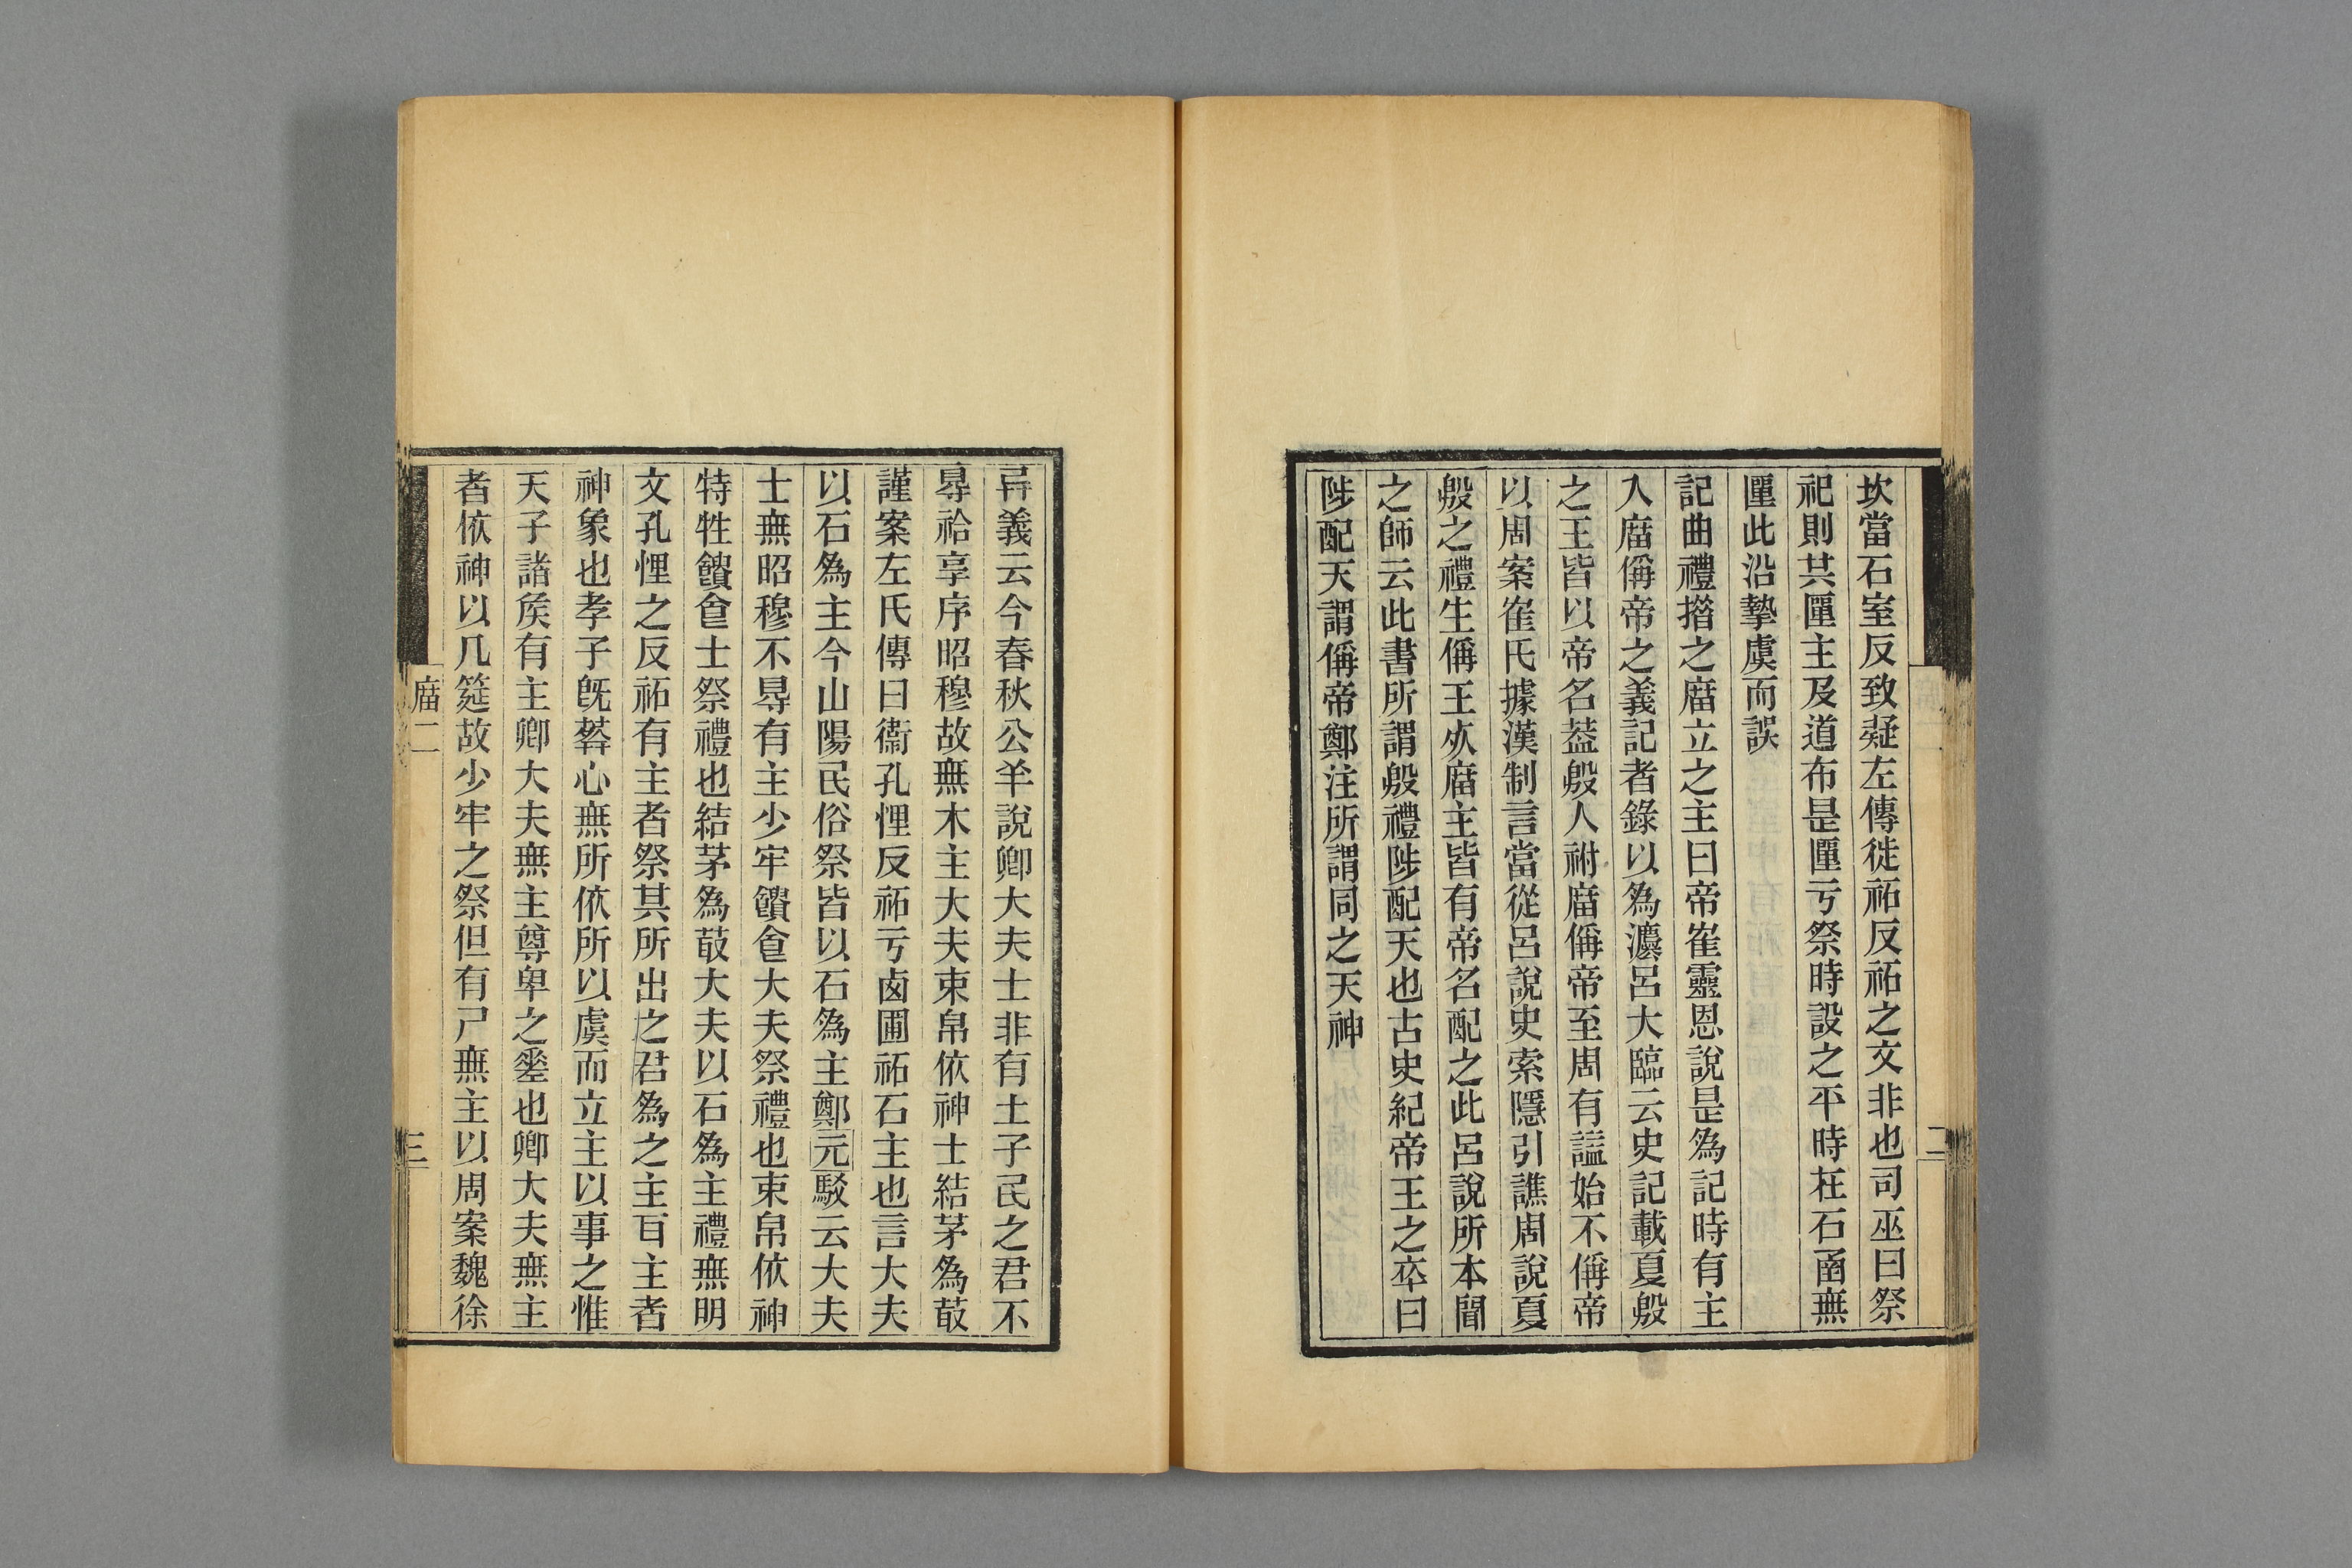 坎當石室反致疑左傳徙祏反祏之文非也司巫曰祭
祀則共匰主及道布是匰亏祭時設之平時在石函無
匰此沿摯虞而誤
記曲禮措之庿立之主曰帝崔靈恩說是為記時有主
入庿偁帝之義記者錄以為灋呂大臨云史記載夏殷
之王皆以帝名葢殷人祔庿偁帝至周有諡始不偁帝
以周案崔氏據漢制言當從呂說史索隱引譙周說夏
殷之禮生偁王𣦸庿主皆有帝名配之此呂說所本閻
之師云此書所謂殷禮陟配天也古史紀帝王之卒曰
陟配天謂偁帝鄭注所謂同之天神
异義云今春秋公羊說卿大夫士非有土子民之君不
㝵祫享序昭穆故無木主大夫束帛依神士結茅為菆
謹案左氏傳曰衞孔悝反祏亏卤圃祏石主也言大夫
以石為主今山陽民俗祭皆以石為主鄭元駁云大夫
士無昭穆不㝵有主少牢饋食大夫祭禮也束帛依神
特牲饋食士祭禮也結茅為菆大夫以石為主禮無明
文孔悝之反祏有主者祭其所出之君為之主百主者
神象也孝子旣葬心無所依所以虞而立主以事之惟
天子諸矦有主卿大夫無主尊卑之差也卿大夫無主
者依神以几筵故少牢之祭但有尸無主以周案魏徐
庿二
三
二